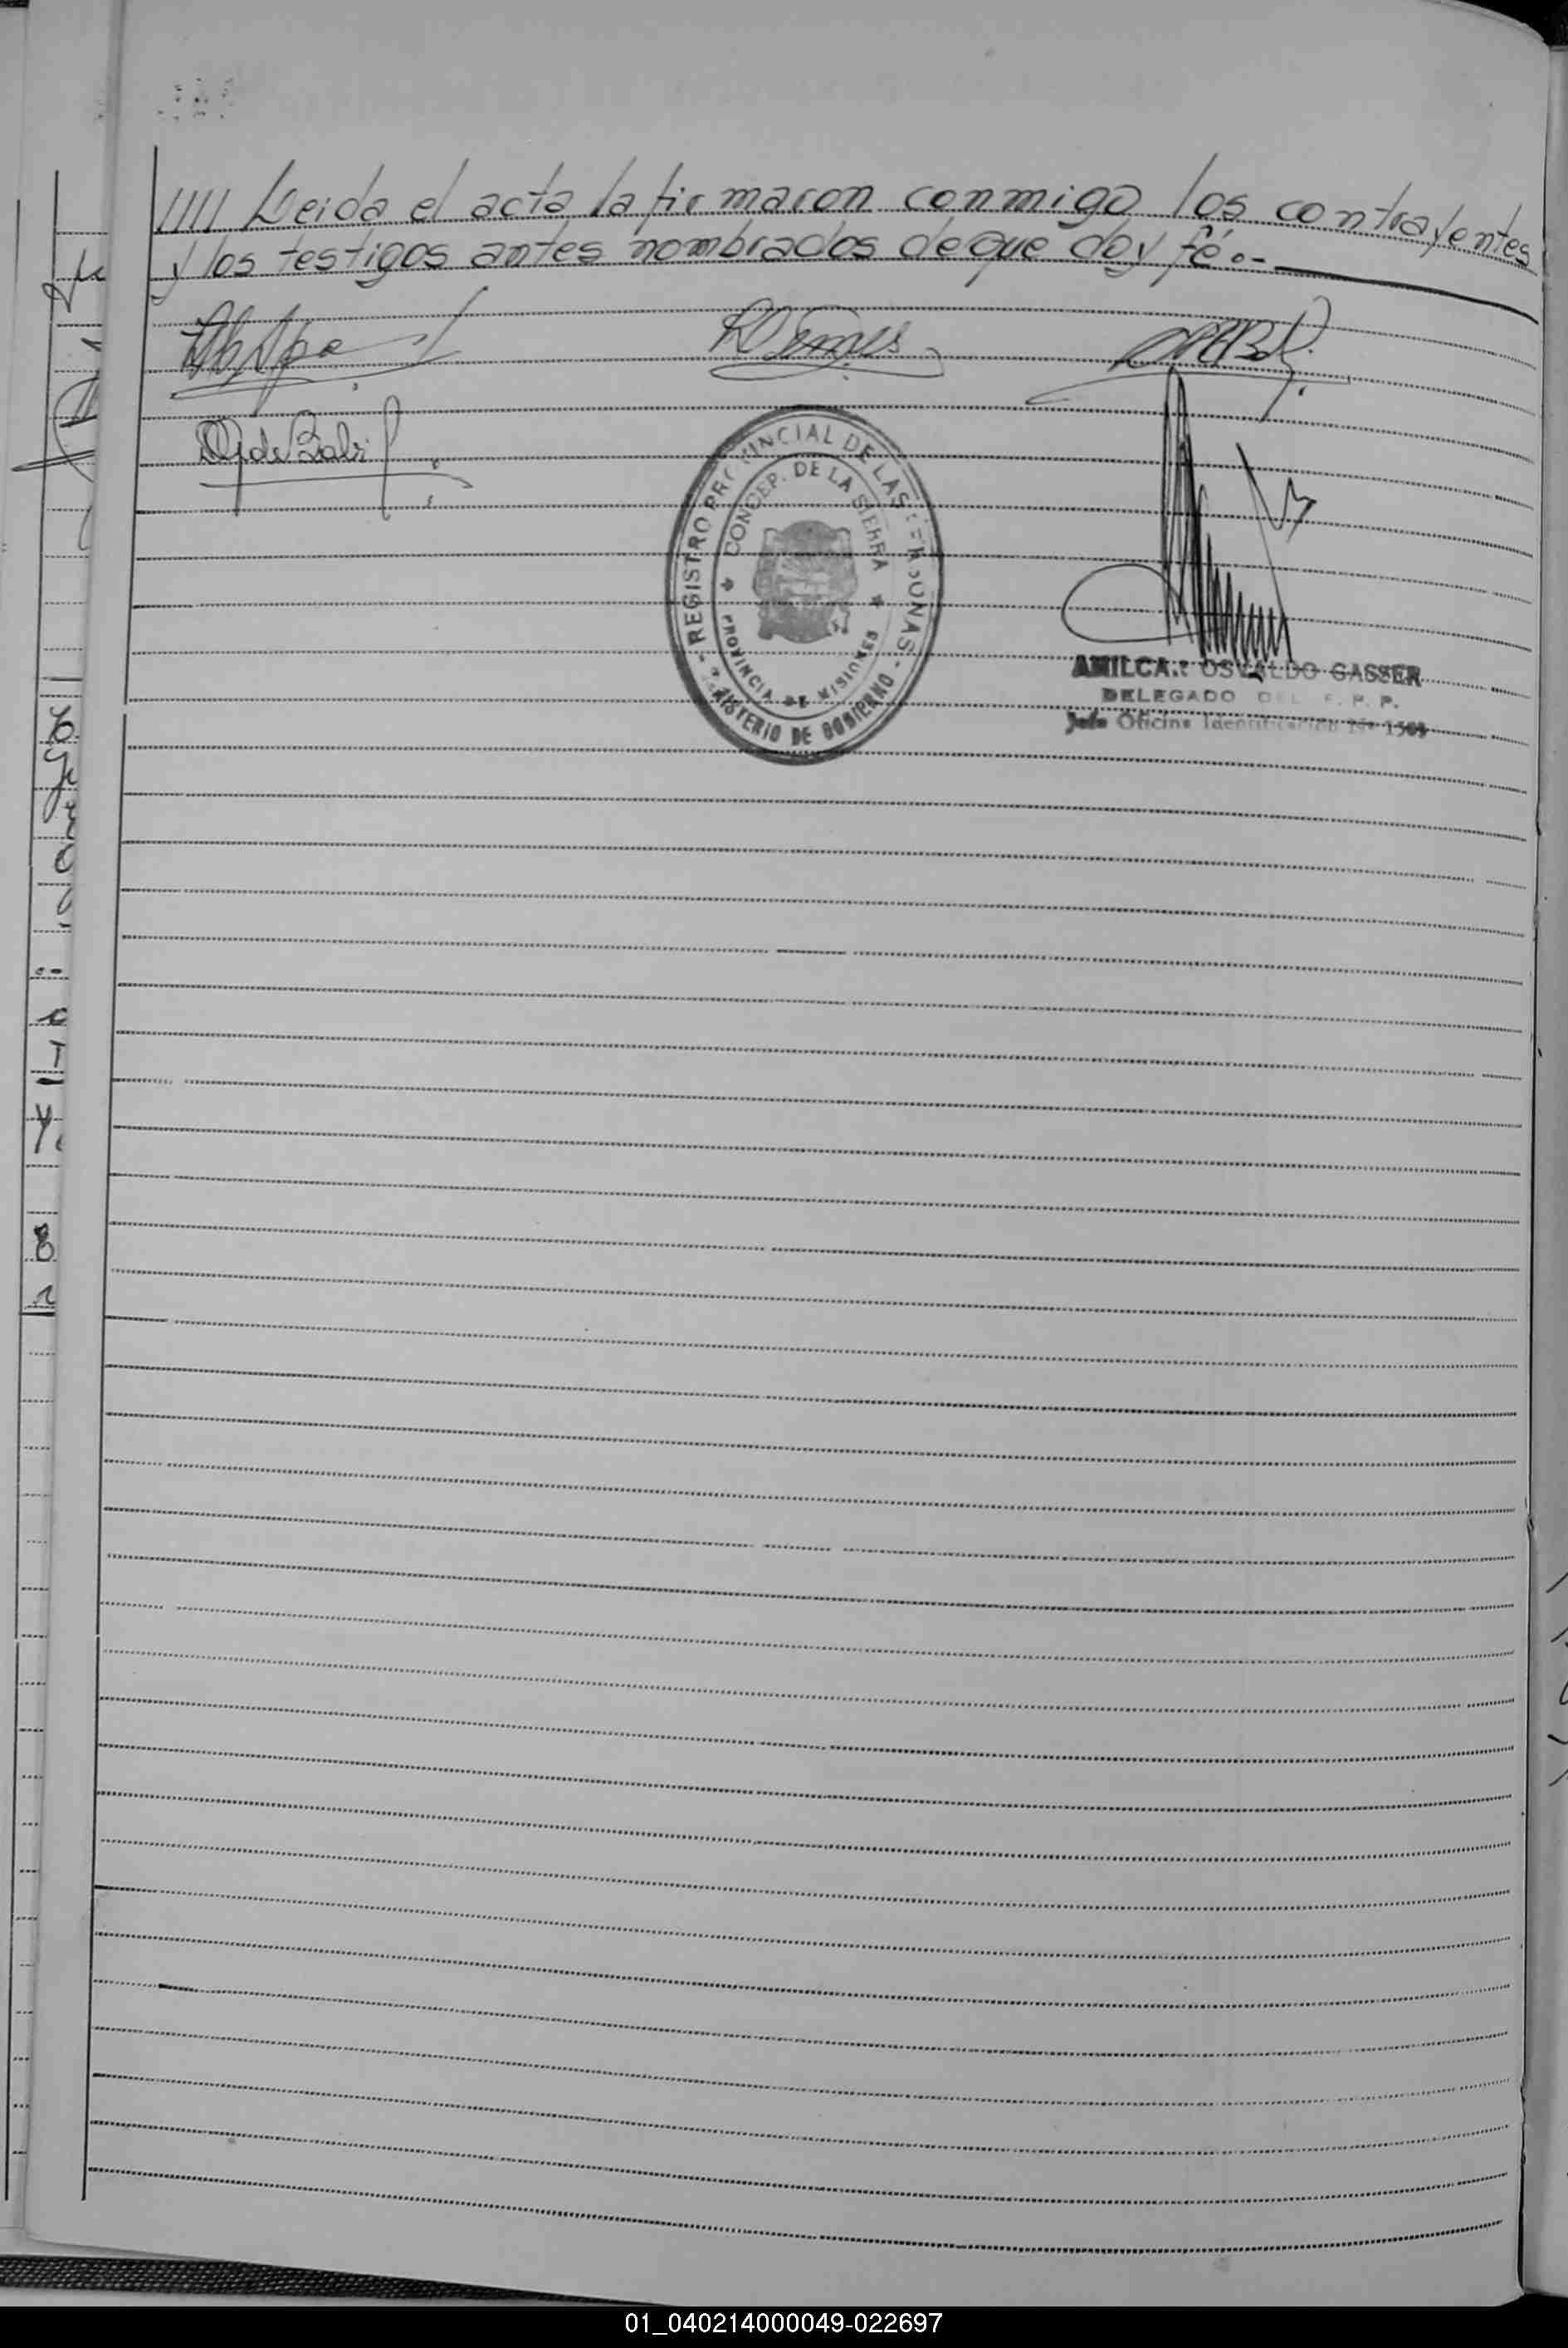 //// Leida el acta, la firmaron conmigo los contrayentes
y los testigos antes nombrados de que doy fé.-
REGISTRO PROVINCIAL DE LAS PERSONAS
CONCEP. DE LA SIERRA
PROVINCIA DE MISIONES
MINISTERIO DE GOBIERNO
AMILCAR OSVALDO GASSER
DELEGADO DEL R. P. P.
Jefe Oficina Identificación Nº
01_040214000049-022697